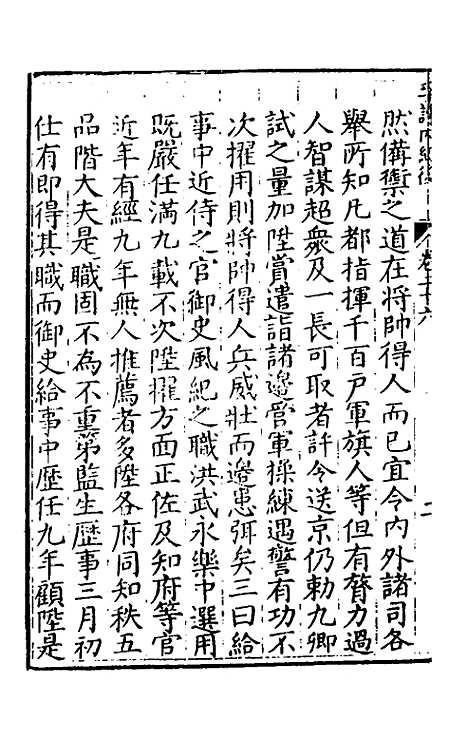 卷三十六
然備禦之道在将帥得人而已宜令内外諸司各
舉所知凡都指揮千百戸軍旗人等但有膂力過
人智謀超衆及一長可取者許令送京仍勑九卿
試之量加陞賞遣詣諸邉管軍操練遇警有功不
次擢用則将帥得人兵威壯而邉患弭矣三曰給
事中近侍之官御史風紀之職洪武永樂中選用
既嚴任滿九載不次陞擢方面正佐及知府等官
近年有經九年無人推薦者多陞各府同知秩五
品階大夫是職固不為不重第監生歴事三月初
仕有即得其職而御史給事中歴任九年顧陞是